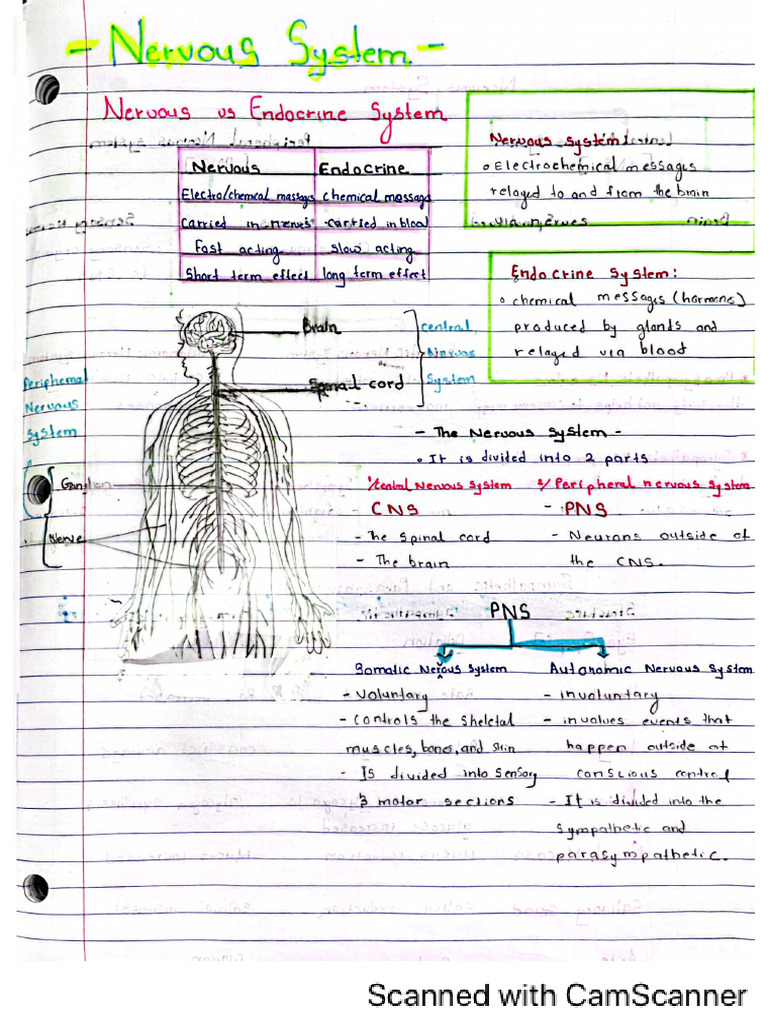 - Nervous System -
Nervous vs Endocrine System
Nervous Endocrine
Electro/chemical massages chemical massags
carried in nerves carried in blood
Fast acting slow acting
Short term effect long term effect
Nervous system:
o Electrochemical messages
relayed to and from the brain
via nerves
Endocrine System:
o chemical messages (hormons)
produced by glands and
relayed via blood
Brain
Spinal cord
central
Nervos
System
Peripheral
Nervous
System
Ganglion
Nerve
- The Nervous System -
• It is divided into 2 parts
1/central Nervous System
- CNS
- The spinal cord
- The brain
2/ Peripheral nervous System
- PNS
- Neurons outside of
the CNS.
PNS
Somatic Nervous System
- voluntary
- controls the skeletal
muscles, bones, and skin
- Is divided into sensory
& motor sections
Autonomic Nervous System
- involuntary
- involves events that
happen outside of
conscious control
- It is divided into the
sympathetic and
parasympathetic.
Scanned with CamScanner